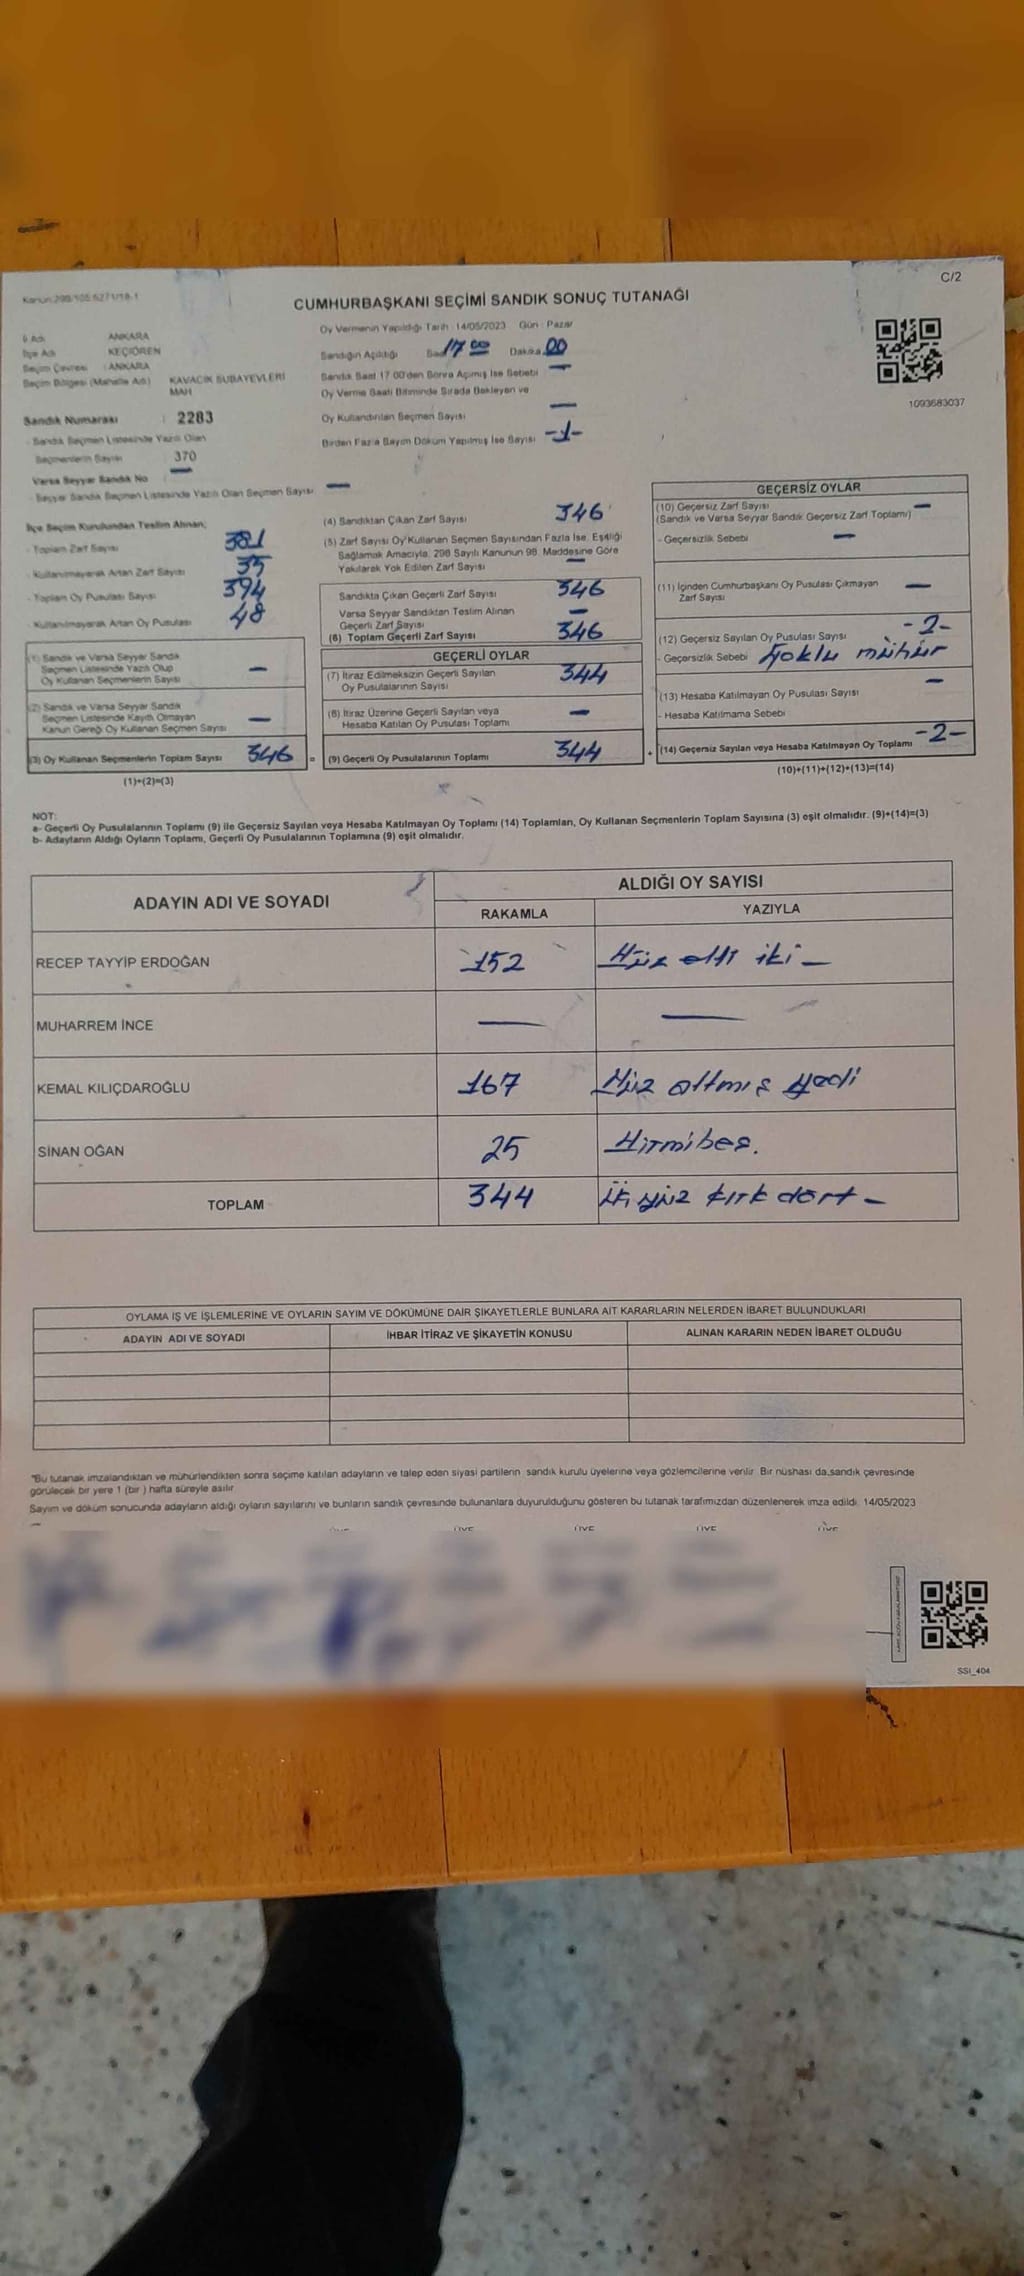 C/2
Kanun:298/105,6271/18-1
CUMHURBAŞKANI SEÇİMİ SANDIK SONUÇ TUTANAĞI
İl Adı ANKARA
İlçe Adı KEÇİÖREN
Seçim Çevresi : ANKARA
Seçim Bölgesi (Mahalle Adı) KAVACIK SUBAYEVLERİ
MAH
Sandık Numarası : 2283
- Sandık Seçmen Listesinde Yazılı Olan
Seçmenlerin Sayısı 370
Varsa Seyyar Sandık No —
- Seyyar Sandık Seçmen Listesinde Yazılı Olan Seçmen Sayısı —
Oy Vermenin Yapıldığı Tarih :14/05/2023 Gün : Pazar
Sandığın Açıldığı Saat 17 00 Dakika 00
Sandık Saat 17:00'den Sonra Açılmış İse Sebebi —
Oy Verme Saati Bitiminde Sırada Bekleyen ve
Oy Kullandırılan Seçmen Sayısı —
Birden Fazla Sayım Döküm Yapılmış İse Sayısı -1-
1093683037
İlçe Seçim Kurulundan Teslim Alınan;
- Toplam Zarf Sayısı 381
- Kullanılmayarak Artan Zarf Sayısı 35
- Toplam Oy Pusulası Sayısı 394
- Kullanılmayarak Artan Oy Pusulası 48
(1) Sandık ve Varsa Seyyar Sandık
Seçmen Listesinde Yazılı Olup
Oy Kullanan Seçmenlerin Sayısı —
(2) Sandık ve Varsa Seyyar Sandık
Seçmen Listesinde Kayıtlı Olmayan
Kanun Gereği Oy Kullanan Seçmen Sayısı —
(3) Oy Kullanan Seçmenlerin Toplam Sayısı 346
(1)+(2)=(3)
(4) Sandıktan Çıkan Zarf Sayısı 346
(5) Zarf Sayısı Oy Kullanan Seçmen Sayısından Fazla İse, Eşitliği
Sağlamak Amacıyla, 298 Sayılı Kanunun 98. Maddesine Göre
Yakılarak Yok Edilen Zarf Sayısı —
Sandıkta Çıkan Geçerli Zarf Sayısı 346
Varsa Seyyar Sandıktan Teslim Alınan
Geçerli Zarf Sayısı —
(6) Toplam Geçerli Zarf Sayısı 346
GEÇERLİ OYLAR
(7) İtiraz Edilmeksizin Geçerli Sayılan
Oy Pusulalarının Sayısı 344
(8) İtiraz Üzerine Geçerli Sayılan veya
Hesaba Katılan Oy Pusulası Toplamı —
= (9) Geçerli Oy Pusulalarının Toplamı 344
GEÇERSİZ OYLAR
(10) Geçersiz Zarf Sayısı —
(Sandık ve Varsa Seyyar Sandık Geçersiz Zarf Toplamı)
- Geçersizlik Sebebi —
(11) İçinden Cumhurbaşkanı Oy Pusulası Çıkmayan
Zarf Sayısı —
(12) Geçersiz Sayılan Oy Pusulası Sayısı -2-
- Geçersizlik Sebebi çoklu mühür
(13) Hesaba Katılmayan Oy Pusulası Sayısı —
- Hesaba Katılmama Sebebi
+ (14) Geçersiz Sayılan veya Hesaba Katılmayan Oy Toplamı -2-
(10)+(11)+(12)+(13)=(14)
NOT:
a- Geçerli Oy Pusulalarının Toplamı (9) ile Geçersiz Sayılan veya Hesaba Katılmayan Oy Toplamı (14) Toplamları, Oy Kullanan Seçmenlerin Toplam Sayısına (3) eşit olmalıdır. (9)+(14)=(3)
b- Adayların Aldığı Oyların Toplamı, Geçerli Oy Pusulalarının Toplamına (9) eşit olmalıdır.
ADAYIN ADI VE SOYADI ALDIĞI OY SAYISI
RAKAMLA YAZIYLA
RECEP TAYYİP ERDOĞAN 152 Yüz elli iki —
MUHARREM İNCE — —
KEMAL KILIÇDAROĞLU 167 Yüz altmış yedi
SİNAN OĞAN 25 Yirmibeş.
TOPLAM 344 üç yüz kırk dört —
OYLAMA İŞ VE İŞLEMLERİNE VE OYLARIN SAYIM VE DÖKÜMÜNE DAİR ŞİKAYETLERLE BUNLARA AİT KARARLARIN NELERDEN İBARET BULUNDUKLARI
ADAYIN ADI VE SOYADI İHBAR İTİRAZ VE ŞİKAYETİN KONUSU ALINAN KARARIN NEDEN İBARET OLDUĞU
"Bu tutanak imzalandıktan ve mühürlendikten sonra seçime katılan adayların ve talep eden siyasi partilerin sandık kurulu üyelerine veya gözlemcilerine verilir. Bir nüshası da,sandık çevresinde
görülecek bir yere 1 (bir ) hafta süreyle asılır.
Sayım ve döküm sonucunda adayların aldığı oyların sayılarını ve bunların sandık çevresinde bulunanlara duyurulduğunu gösteren bu tutanak tarafımızdan düzenlenerek imza edildi. 14/05/2023
ÜYE ÜYE ÜYE ÜYE ÜYE
SSI_404